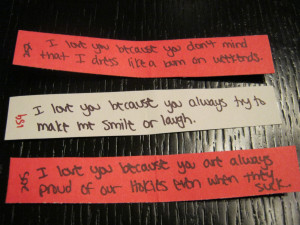 I love you because you don't mind
that I dress like a bum on weekends.
159
I love you because you always try to
make me smile or laugh.
I love you because you are always
proud of our Hokies even when they
suck.